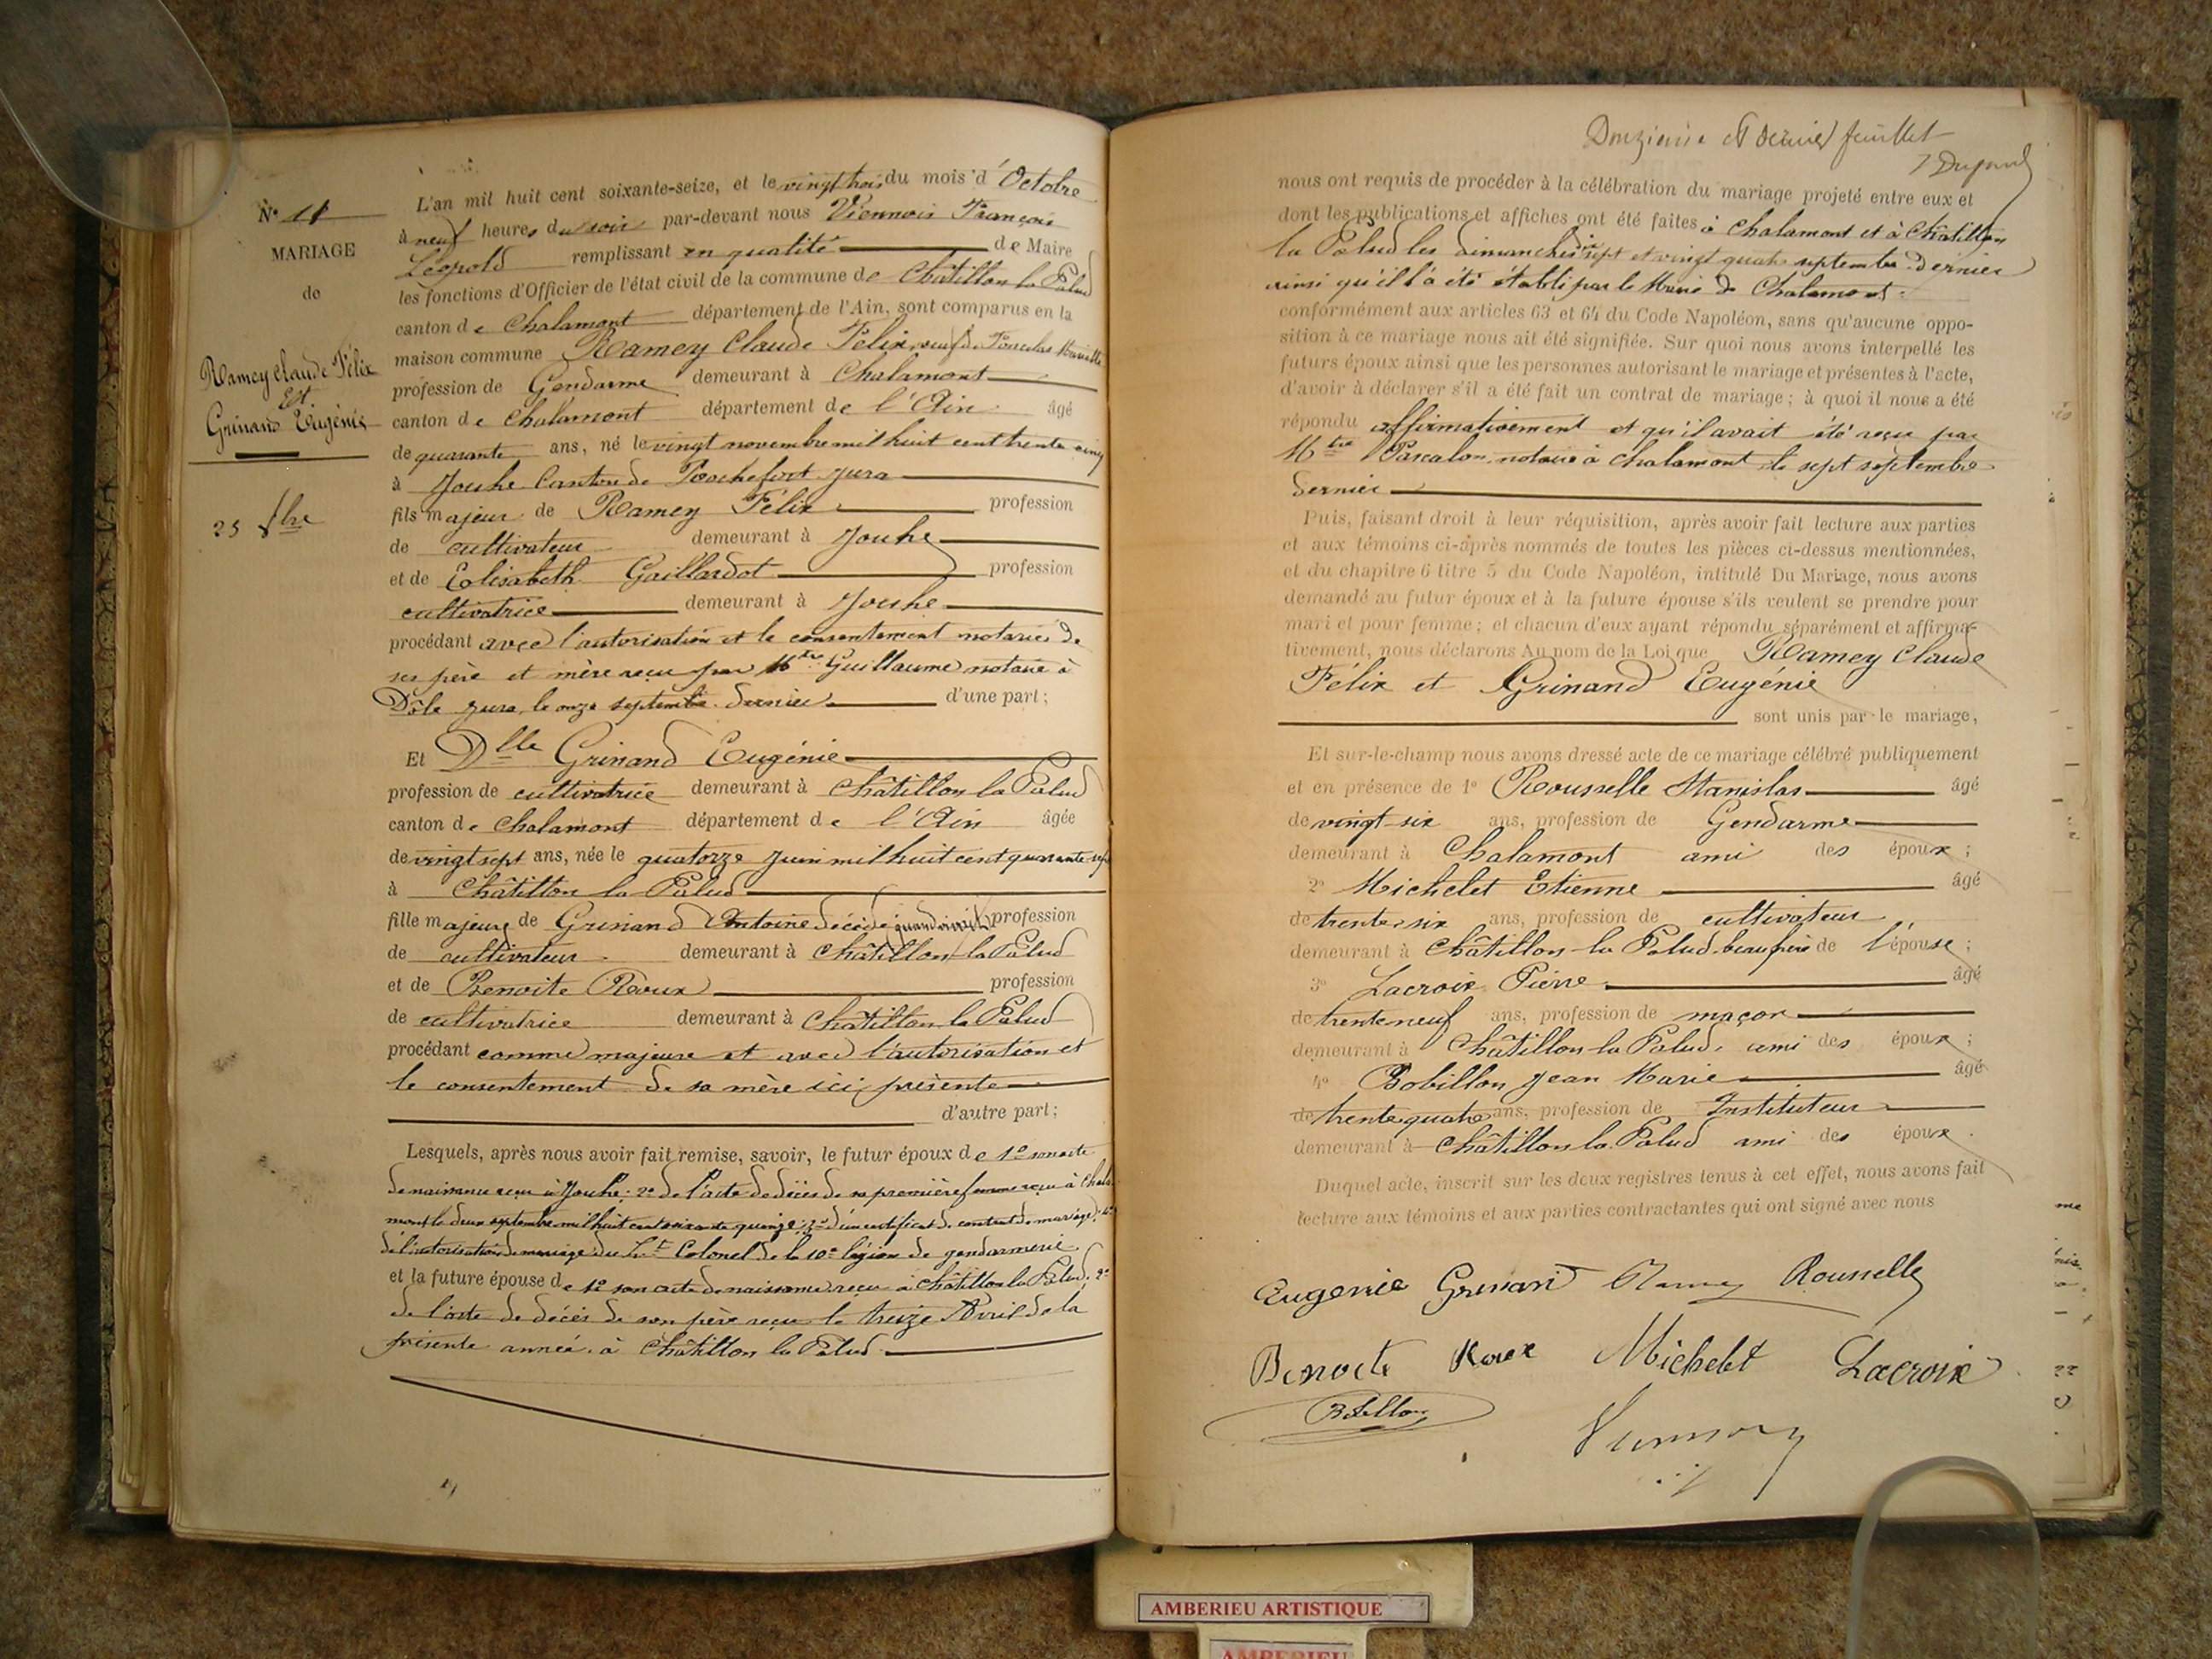 N° 11
MARIAGE
de
Ramey Claude Félix
et
Grinand Eugénie
25 8bre
L'an mil huit cent soixante-seize, et le vingt trois du mois d'Octobre
à neuf heures du soir par-devant nous Viennois François
Léopold remplissant en qualité de Maire
les fonctions d'Officier de l'état civil de la commune de Châtillon la Palud
canton de Chalamont département de l'Ain, sont comparus en la
maison commune Ramey Claude Félix, veuf de
profession de Gendarme demeurant à Chalamont
canton de Chalamont département de l'Ain âgé
de quarante ans, né le vingt novembre mil huit cent trente cinq
à Jouhe Canton de Rochefort Jura
fils majeur de Ramey Félix profession
de cultivateur demeurant à Jouhe
et de Elisabeth Gaillardot profession
cultivatrice demeurant à Jouhe
procédant avec l'autorisation et le consentement notarié de
ses père et mère reçu par Mtre Guillaume notaire à
Dôle Jura, le onze septembre dernier d'une part;
Et Dlle Grinand Eugénie
profession de cultivatrice demeurant à Châtillon la Palud
canton de Chalamont département de l'Ain âgée
de vingt sept ans, née le quatorze Juin mil huit cent quarante sept
à Châtillon la Palud
fille majeure de Grinand Antoine décédé quand vivait profession
de cultivateur demeurant à Châtillon la Palud
et de Benoite Roux profession
de cultivatrice demeurant à Châtillon la Palud
procédant comme majeure et avec l'autorisation et
le consentement de sa mère ici présente
d'autre part;
Lesquels, après nous avoir fait remise, savoir, le futur époux de 1° son acte
de naissance reçu à Jouhe; 2° de l'acte de décès de sa première femme reçu à Chala
mont le deux septembre mil huit cent soixante quinze; 3° d'un certificat de contrat de mariage; 4°
de l'autorisation de mariage du Lt Colonel de la 10e légion de gendarmerie
et la future épouse de 1° son acte de naissance reçu à Châtillon la Palud; 2°
de l'acte de décès de son père reçu le treize Avril de la
présente année à Châtillon la Palud
Douzième et dernier feuillet
nous ont requis de procéder à la célébration du mariage projeté entre eux et
dont les publications et affiches ont été faites à Chalamont et à Châtillon
la Palud les dimanches dix sept et vingt quatre septembre dernier
ainsi qu'il l'a été établi par le Maire de Chalamont.
conformément aux articles 63 et 64 du Code Napoléon, sans qu'aucune oppo-
sition à ce mariage nous ait été signifiée. Sur quoi nous avons interpellé les
futurs époux ainsi que les personnes autorisant le mariage et présentes à l'acte,
d'avoir à déclarer s'il a été fait un contrat de mariage; à quoi il nous a été
répondu affirmativement et qu'il avait été reçu par
Mtre Pascalon notaire à Chalamont le sept septembre
dernier
Puis, faisant droit à leur réquisition, après avoir fait lecture aux parties
et aux témoins ci-après nommés de toutes les pièces ci-dessus mentionnées,
et du chapitre 6 titre 5 du Code Napoléon, intitulé Du Mariage, nous avons
demandé au futur époux et à la future épouse s'ils veulent se prendre pour
mari et pour femme; et chacun d'eux ayant répondu séparément et affirma-
tivement, nous déclarons Au nom de la Loi que Ramey Claude
Félix et Grinand Eugénie
sont unis par le mariage,
Et sur-le-champ nous avons dressé acte de ce mariage célébré publiquement
et en présence de 1° Rousselle Stanislas âgé
de vingt-six ans, profession de Gendarme
demeurant à Chalamont ami des époux;
2° Michelet Etienne âgé
de trente six ans, profession de cultivateur
demeurant à Châtillon la Palud beau frère de l'épouse;
3° Lacroix Pierre âgé
de trente neuf ans, profession de maçon
demeurant à Châtillon la Palud, ami des époux;
4° Bobillon Jean Marie âgé
de trente quatre ans, profession de Instituteur
demeurant à Châtillon la Palud ami des époux.
Duquel acte, inscrit sur les deux registres tenus à cet effet, nous avons fait
lecture aux témoins et aux parties contractantes qui ont signé avec nous
Eugenie Grinand Ramey Rousselle
Benoite Roux Michelet Lacroix
Bobillon
Viennois
AMBERIEU ARTISTIQUE
AMBERIEU